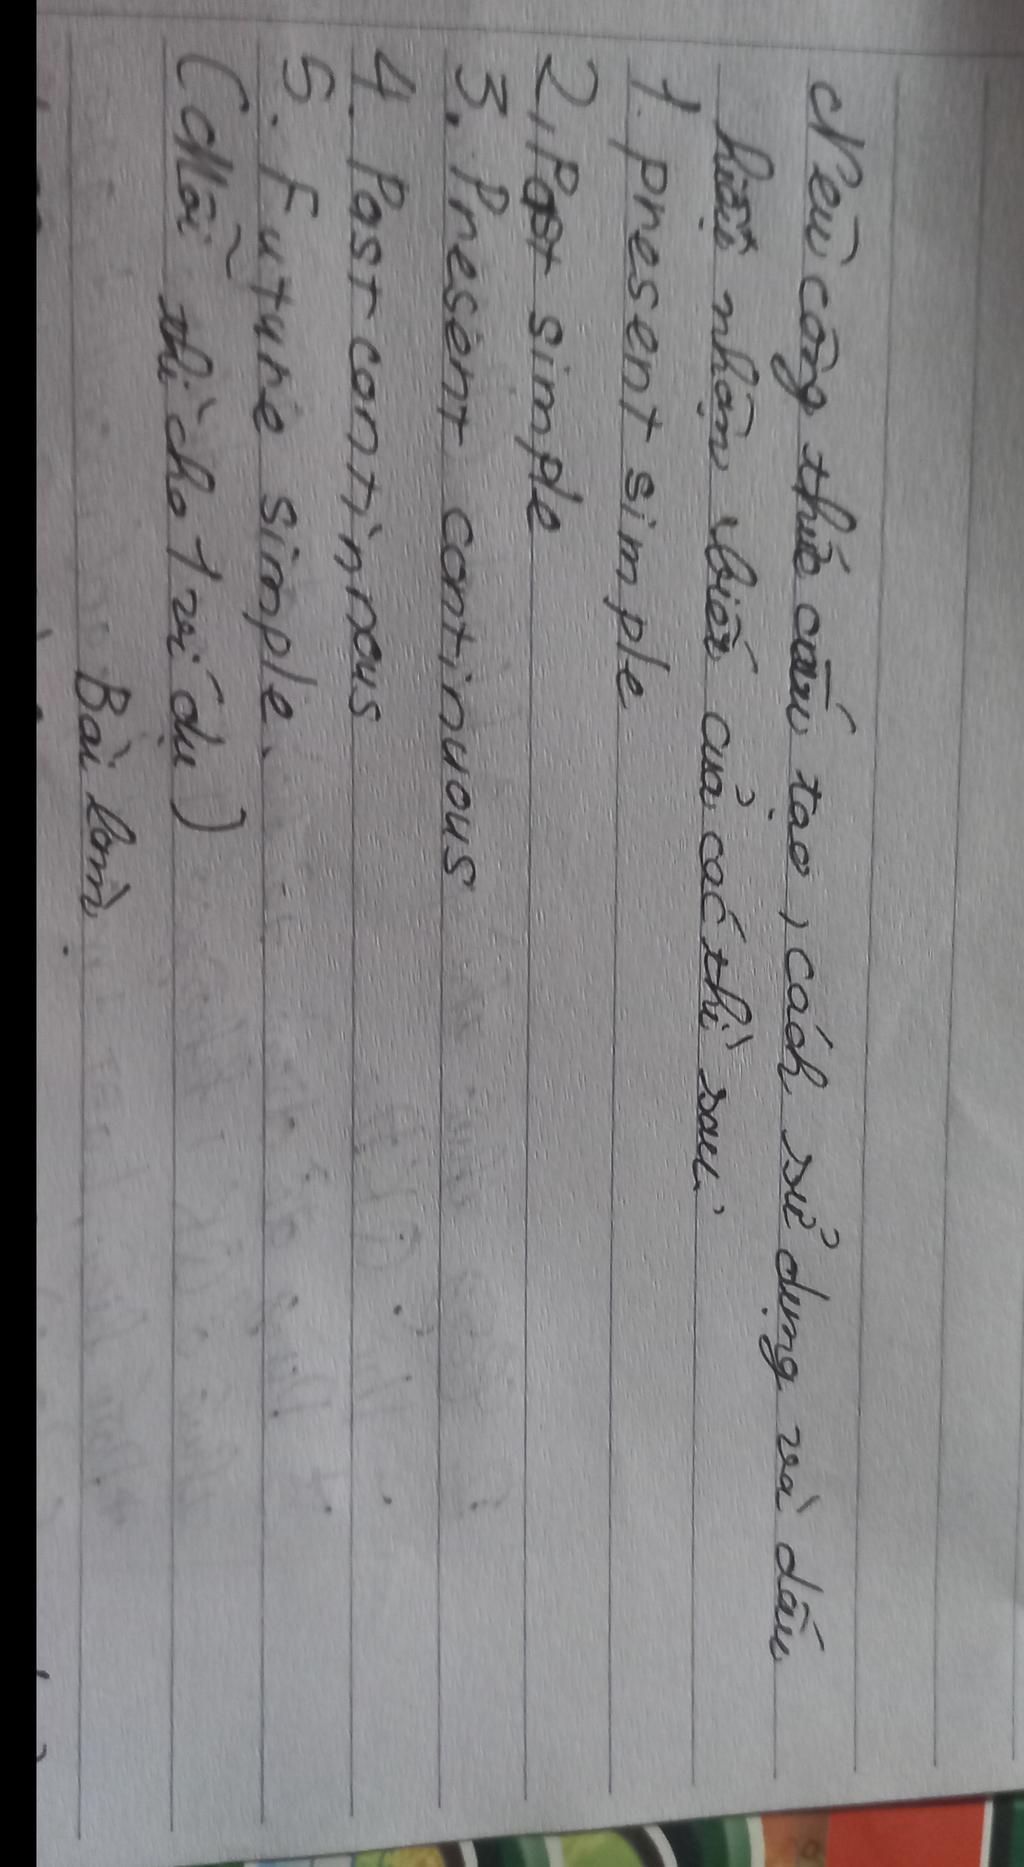 Nêu công thức cấu tạo, cách sử dụng và dấu
hiệu nhận biết của các thì sau:
1. present simple
2, Past simple
3. Present continuous
4. Past continuous
5. Future simple.
(Mỗi thì cho 1 ví dụ)
Bài làm